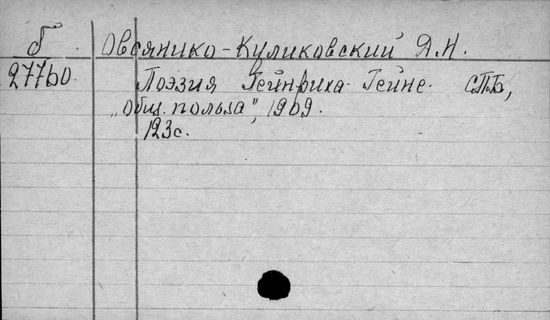 б Овсянико-Куликовский Д.Н.
27760. Поэзия Гейнриха Гейне. СПБ,
„Общ. польза", 1909.
123с.